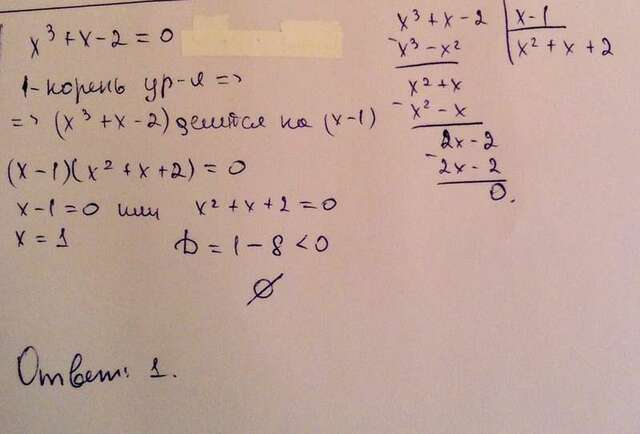 x³ + x - 2 = 0
1 - корень ур-я =>
=> (x³ + x - 2) делится на (x - 1)
(x - 1)(x² + x + 2) = 0
x - 1 = 0 или x² + x + 2 = 0
x = 1 D = 1 - 8 < 0
∅
Ответ: 1.
x³ + x - 2 | x - 1
- x³ - x² | x² + x + 2
x² + x
- x² - x
2x - 2
- 2x - 2
0.